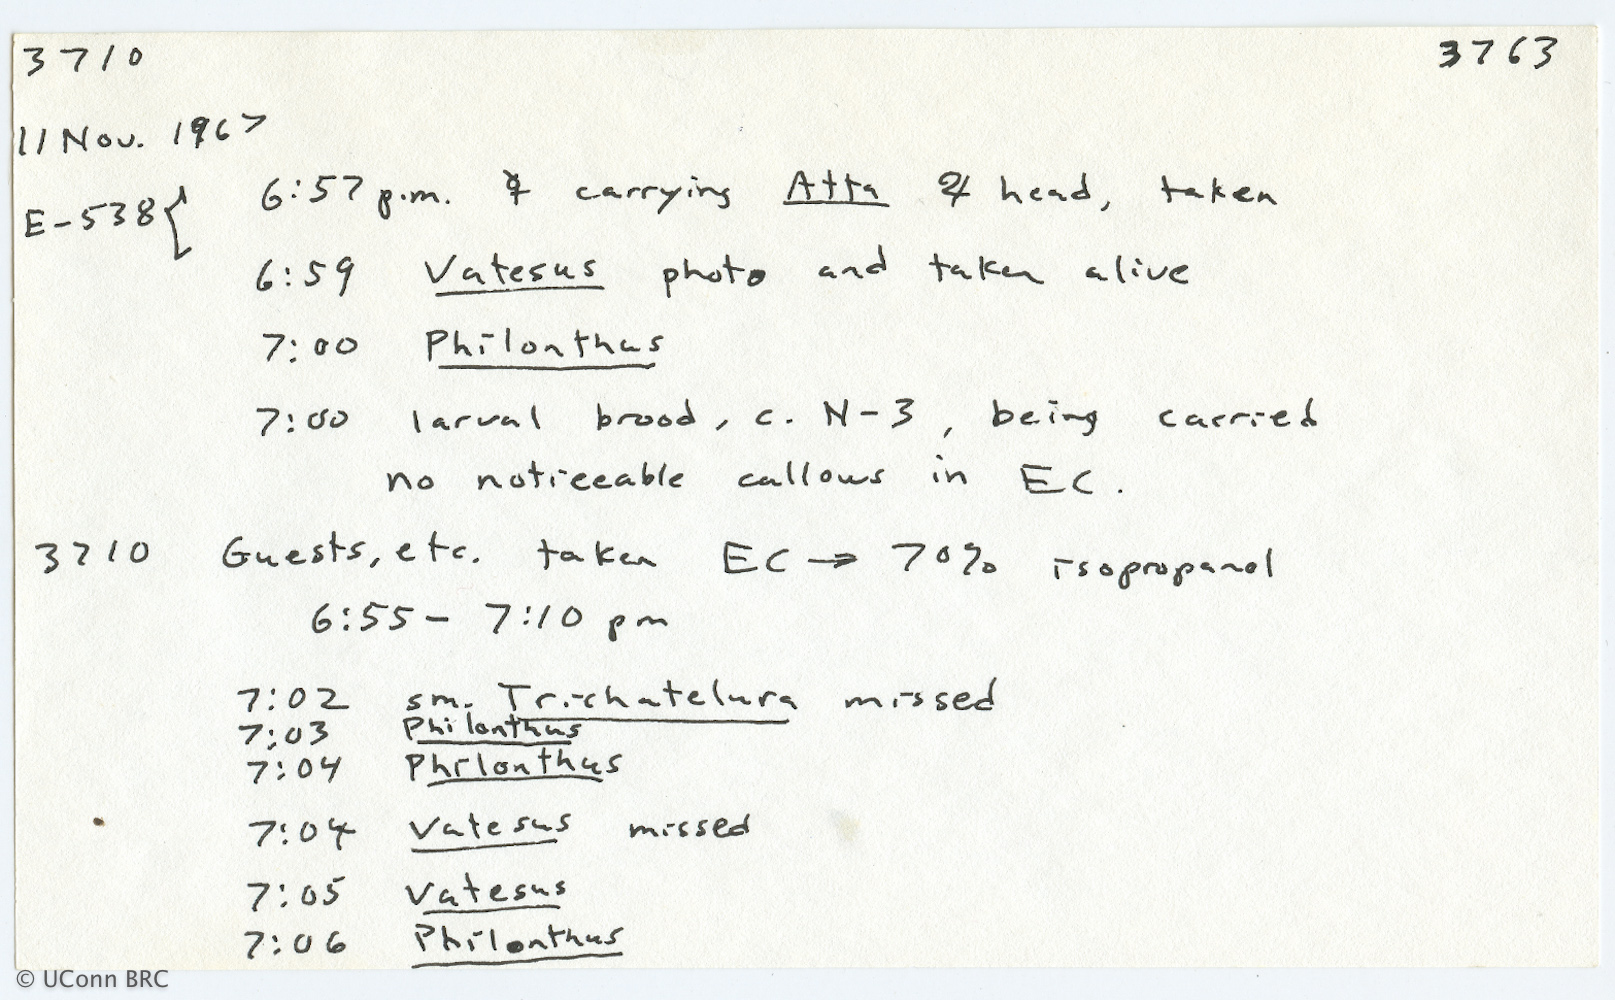 3710 3763
11 Nov. 1967
E-538 { 6:57 p.m. ☿ carrying Atta ♃ head, taken
6:59 Vatesus photo and taken alive
7:00 Philonthus
7:00 larval brood, c. N-3, being carried
no noticeable callows in EC.
3710 Guests, etc. taken EC → 70% isopropanol
6:55 - 7:10 pm
7:02 sm. Trichatelura missed
7:03 Philonthus
7:04 Philonthus
7:04 Vatesus missed
7:05 Vatesus
7:06 Philonthus
© UConn BRC